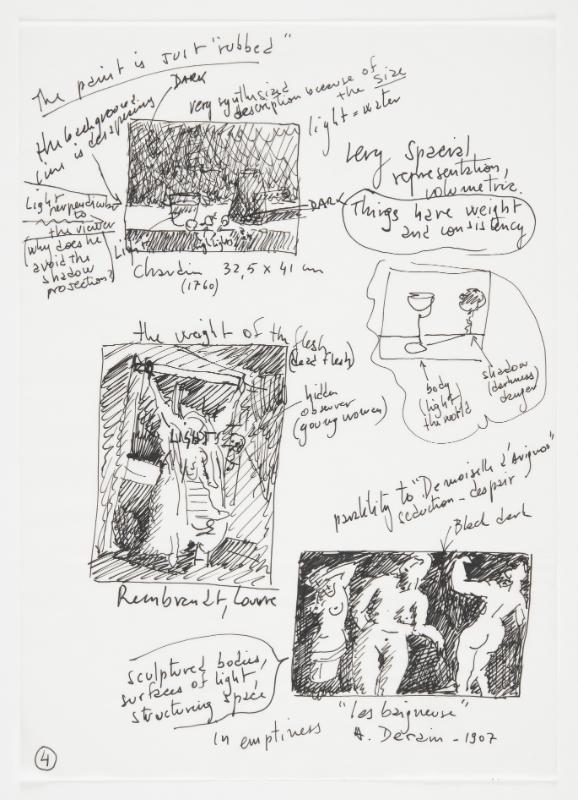 The paint is just "rubbed"
DARK
very synthesized
description because of
the size
light = water
the background
line is
Light
perpendicular
to
the viewer
(why does he
avoid the
shadow
projection?)
Light
DARK
Very Special
representation,
volumetric.
Things have weight
and consistency
Chardin 32,5 x 41 cm
(1760)
the weight of the flesh
(dead flesh)
LIGHT
hidden
observer
(young woman)
body
(light)
the world
shadow
(darkness)
danger
to "Demoiselle d'Avignon"
seduction - despair
Black dark
Rembrandt, Louvre
sculptured bodies,
surfaces of light,
structuring space
in emptiness
"les baigneuse"
A. Derain - 1907
4